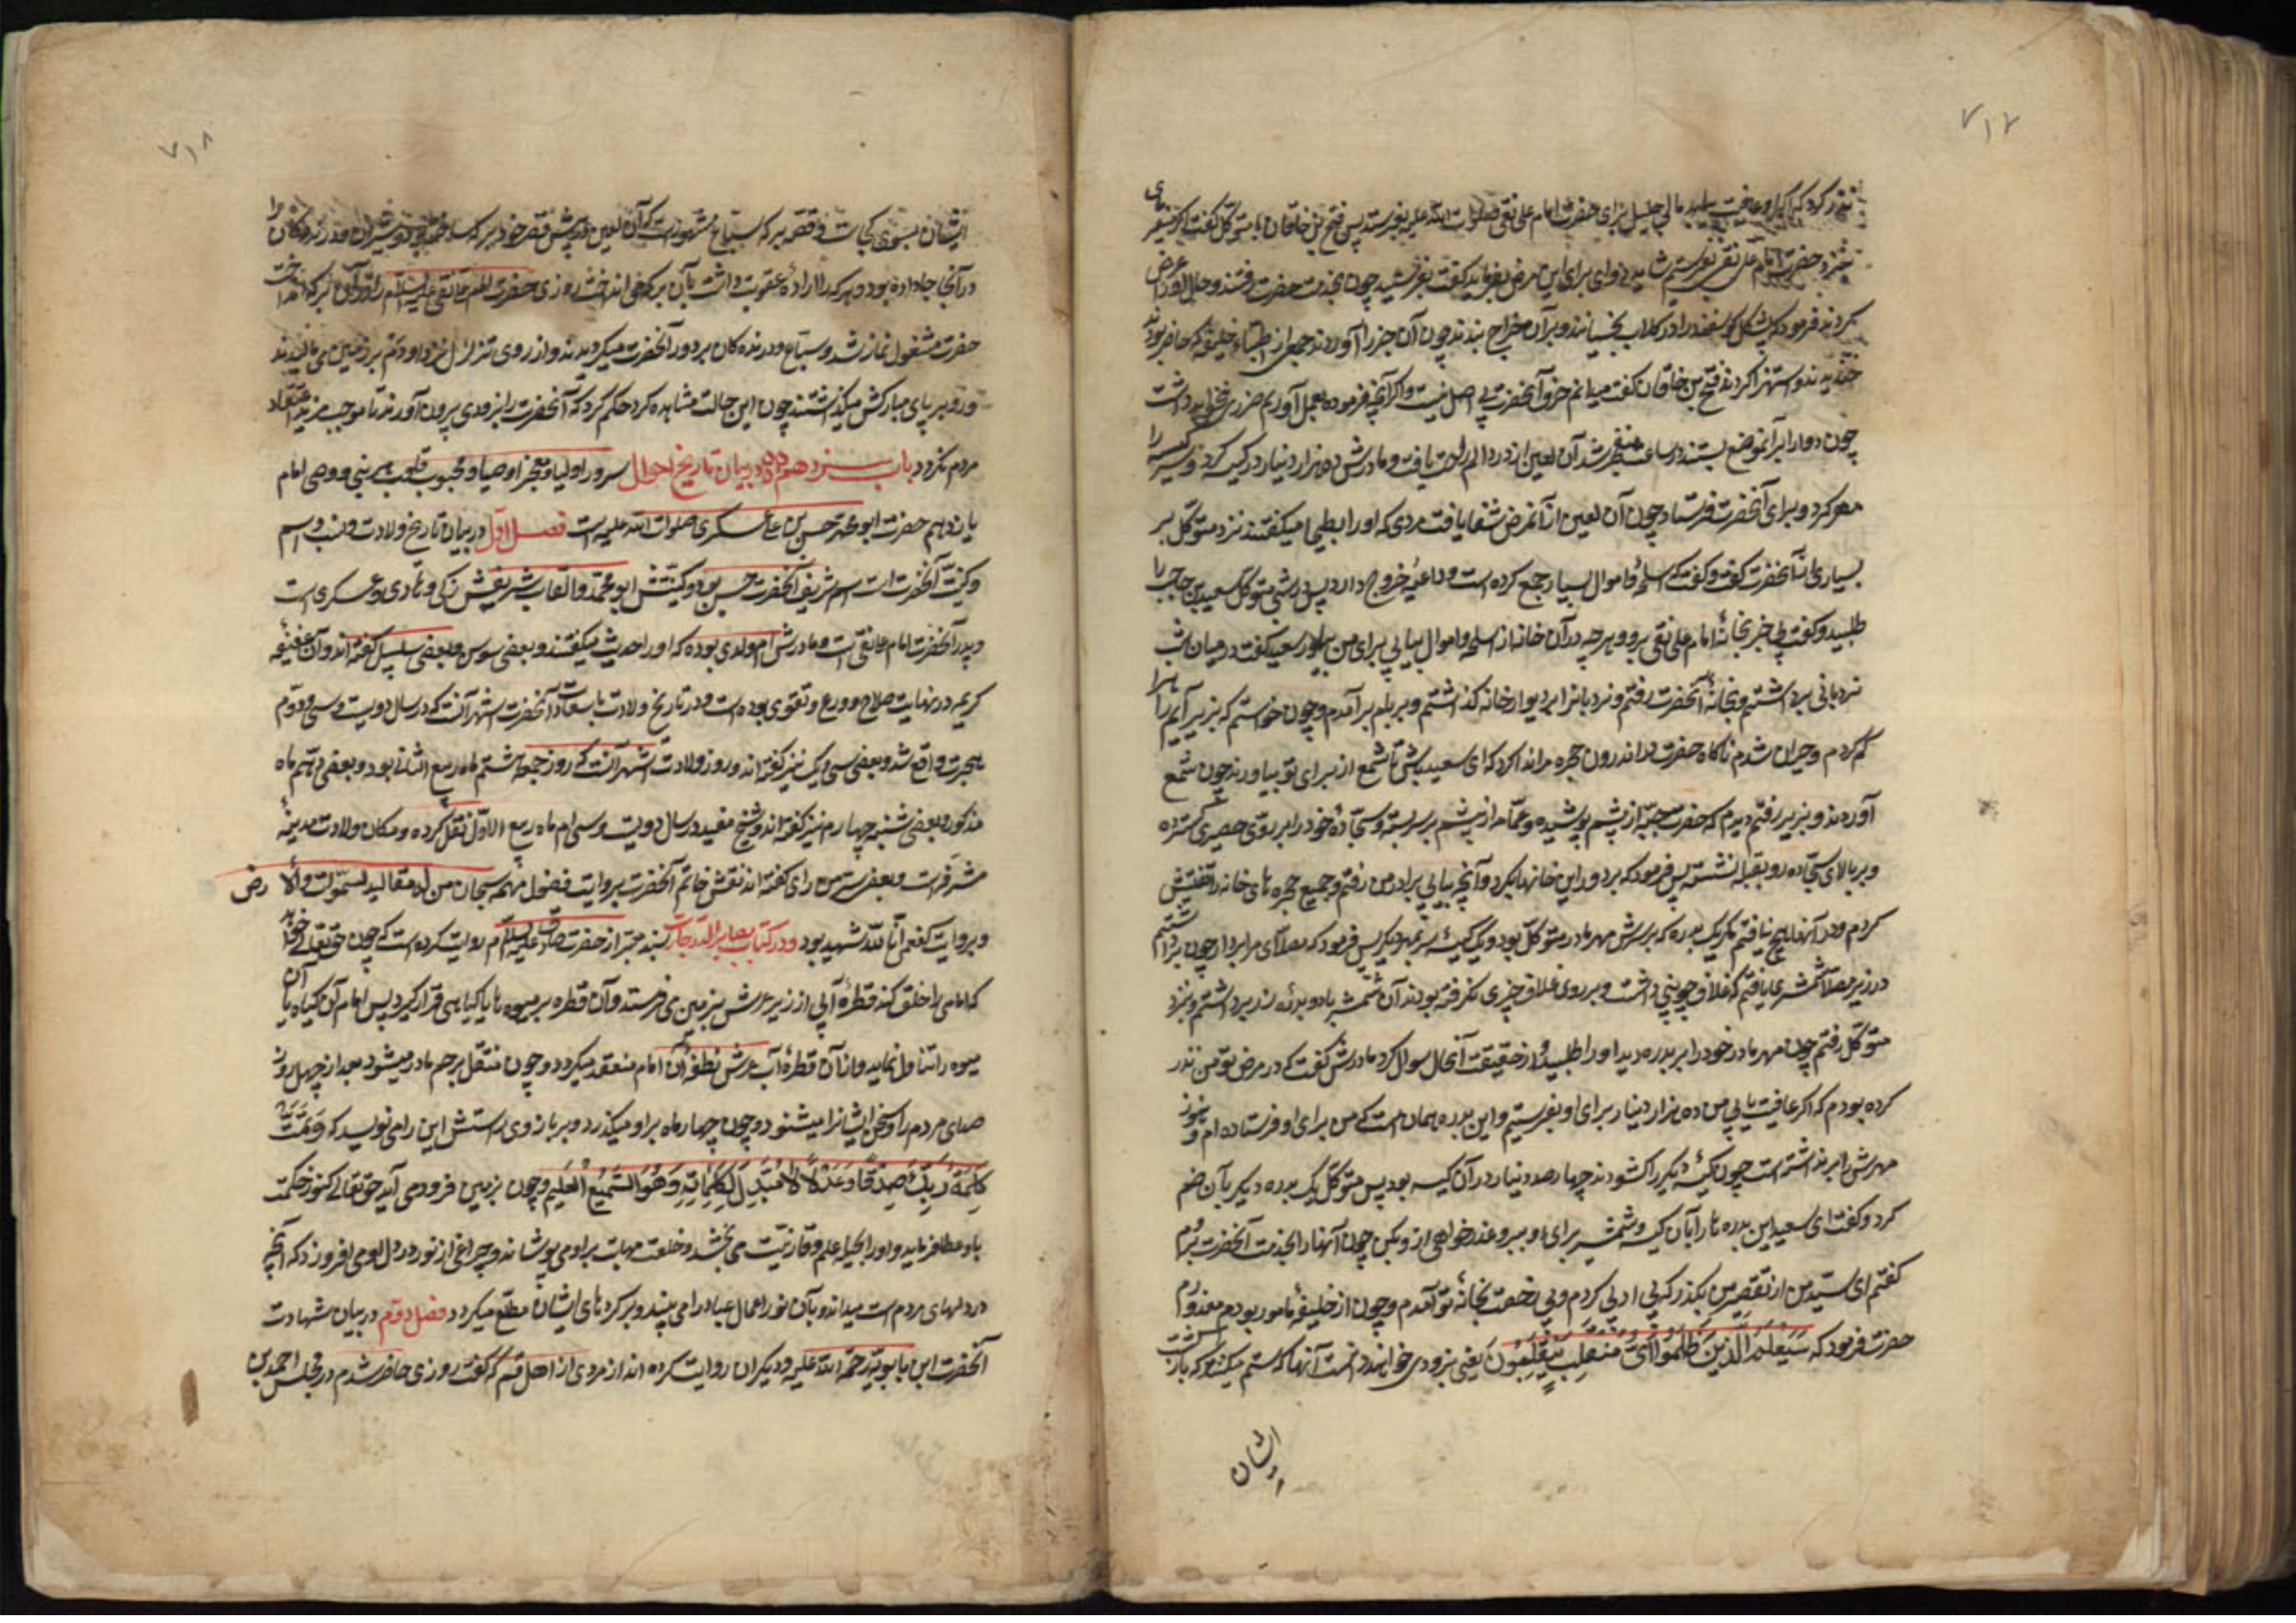 ۷۱۷
نذر کرد که اگر او عافیت یابد مال جلیل برای حضرت امام علی نقی صلوات الله علیه بفرستد پس فتح بن خاقان با متوکل گفت اگر میفرمای
بنزد حضرت امام علی نقی بفرستیم شاید دوای برای این مرض بفرماید گفت بفرستید چون بخدمت حضرت رفتند و حال او را عرض
کردند فرمود که پشکل گوسفند را در گلاب بخیسانند و بر آن خراج بندند چون آن خبر را آوردند جمعی از اطباء خلیفه که حاضر بودند
خندیدند و استهزا کردند فتح بن خاقان گفت میدانم حرف آنحضرت بی اصل نیست و اگر آنچه فرموده بعمل آوریم ضرری نخواهد داشت
چون دوا را بر آنموضع بستند در ساعت منفجر شد آن لعین از درد و الم راحت یافت و مادرش ده هزار دینار در کیسه کرد و سر کیسه را
مهر کرد و برای آنحضرت فرستاد چون آن لعین از آنمرض شفا یافت مردی که او را بطحا میگفتند نزد متوکل بد
بسیاری از آنحضرت گفت و گفت که اسلحه و اموال بسیار جمع کرده است و داعیه خروج دارد پس شبی متوکل سعید بن حاجب را
طلبید و گفت بی خبر بخانه امام علی نقی برو و هرچه در آن خانه از اسلحه و اموال بیابی برای من بیاور سعید گفت در میان شب
نردبانی برداشتم و بخانه آنحضرت رفتم و نردبانرا بر دیوار خانه گذاشتم و بر بام برآمدم و چون خواستم که بزیر آیم راه را
گم کردم و حیران شدم ناگاه حضرت از اندرون حجره مرا ندا کرد که ای سعید باش تا شمع از برای تو بیاورند چون شمع
آوردند و بزیر رفتم دیدم که حضرت جبّه از پشم پوشیده و عمّامه از پشم بر سر بسته و سجّاده خود را بر روی حصیری گسترده
و بر بالای سجّاده رو بقبله نشسته پس فرمود که برو در این خانها بگرد و آنچه بیابی بردار من رفتم و جمیع حجره های خانه را تفتیش
کردم و در آنها هیچ نیافتم مگر یک بدره که بر سرش مهر مادر متوکل بود و یک کیسه سر بمهر دیگر پس فرمود که مصلّای مرا بردار چون برداشتم
در زیر مصلّا شمشیری یافتم که غلاف چوبینی داشت و بر روی غلاف چیزی نگرفته بودند آن شمشیر با دو بدره زر برداشتم و بنزد
متوکل رفتم چون مهر مادر خود را بر بدره دید او را طلبید و از حقیقت آنحال سوال کرد مادرش گفت که در مرض تو من نذر
کرده بودم که اگر عافیت یابی من ده هزار دینار برای او بفرستم و این بدره همان است که من برای او فرستاده ام و هنوز
مهرش را برنداشته است چون کیسه دیگر را گشودند چهارصد دینار در آن کیسه بود پس متوکل یک بدره دیگر بآن ضم
کرد و گفت ای سعید این بدره ها را با آن کیسه و شمشیر برای او ببر و عذرخواهی از او بکن چون آنها را بخدمت آنحضرت بردم
گفتم ای سید من از تقصیر من بگذر که بی ادبی کردم و بی رخصت بخانه تو آمدم و چون از خلیفه مامور بودم معذورم
حضرت فرمود که سَیَعْلَمُ الَّذِینَ ظَلَمُوا أَیَّ مُنْقَلَبٍ یَنْقَلِبُونَ یعنی بزودی خواهند دانست آنها که ستم میکنند که بازگشت
ایشان
۷۱۸
ایشان بسوی کجاست و قصه برکه سباع مشهور است که آن لعین در پیش قصر خود برکه ساخته بود و شیران و درندگان را
در آنجا جا داده بود و هر که را اراده عقوبت داشت بآن برکه می انداخت روزی حضرت امام علی نقی علیه السلام را در آن برکه انداخت
حضرت مشغول نماز شد و سباع و درنده کان بر دور آنحضرت میگردیدند و از روی تذلل نزد او دم بر زمین می مالیدند
و رو بر پای مبارکش میگذاشتند چون این حالت مشاهده کرد حکم کرد که آنحضرت را بزودی بیرون آورند تا موجب مزید اعتقاد
مردم نگردد باب سیزدهم در بیان تاریخ احوال سرور اولیا و مفخر اوصیا و محبوب قلوب هر نبی و وصی امام
یازدهم حضرت ابو محمد حسن بن علی عسکری صلوات الله علیه است فصل اول در بیان تاریخ ولادت و نسب و اسم
و کنیت آنحضرت است اسم شریف آنحضرت حسن بود و کنیتش ابو محمد و القاب شریفش زکی و هادی و عسکری است
و پدر آنحضرت امام علی نقی است و مادرش ام ولدی بوده که او را حدیث میگفتند و بعضی سوسن و بعضی سلیل گفته اند و آن عفیفه
کریمه در نهایت صلاح و ورع و تقوی بوده است و در تاریخ ولادت با سعادت آنحضرت اشهر آنست که در سال دویست و سی و دوم
هجرت واقع شد و بعضی سی و یک نیز گفته اند و روز ولادت اشهر آنست که روز جمعه هشتم ماه ربیع الثانی بود و بعضی دهم ماه
مذکور و بعضی شنبه چهارم نیز گفته اند و شیخ مفید در سال دویست و سی ام ماه ربیع الاول نقل کرده و مکان ولادت مدینه
مشرفه است و بعضی سر من رای گفته اند نقش خاتم آنحضرت بروایت فصول مهمه سبحان من له مقالید السموات و الارض
و بروایت کفعمی انا لله شهید بود و در کتاب بصایر الدرجات بسند معتبر از حضرت صادق علیه السلام روایت کرده است که چون حقتعالی خواهد
که امامی را خلق کند قطره آبی از زیر عرش بزمین می فرستد و آن قطره بر میوه ها یا گیاهی قرار گیرد پس امام آن گیاه یا آن
میوه را تناول نماید و از آن قطره آب عرش نطفه آن امام منعقد میگردد و چون منتقل برحم مادر میشود بعد از چهل روز
صدای مردم را و سخن ایشانرا میشنود و چون چهار ماه بر او میگذرد و بر بازوی راستش این را می نویسد که وَتَمَّتْ
کَلِمَةُ رَبِّکَ صِدْقًا وَعَدْلًا لَا مُبَدِّلَ لِکَلِمَاتِهِ وَهُوَ السَّمِیعُ الْعَلِیمُ و چون بزمین فرود می آید حقتعالی کنوز حکمت
باو عطا فرماید و او را بحلیه علم و وقار زینت می بخشد و خلعت مهابت بر او می پوشاند و چراغی از نور در دل او می افروزد که آنچه
در دلهای مردم است میداند و بآن نور اعمال عباد را می بیند و بر کرده های ایشان مطلع میگردد فصل دوم در بیان شهادت
آنحضرت ابن بابویه رحمة الله علیه و دیگران روایت کرده اند از مردی از اهل قم که گفت روزی حاضر شدم در مجلس احمد بن